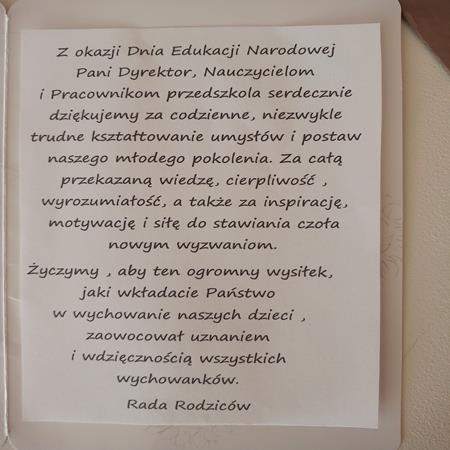 Z okazji Dnia Edukacji Narodowej
Pani Dyrektor, Nauczycielom
i Pracownikom przedszkola serdecznie
dziękujemy za codzienne, niezwykle
trudne kształtowanie umysłów i postaw
naszego młodego pokolenia. Za całą
przekazaną wiedzę, cierpliwość ,
wyrozumiałość, a także za inspirację,
motywację i siłę do stawiania czoła
nowym wyzwaniom.
Życzymy , aby ten ogromny wysiłek,
jaki wkładacie Państwo
w wychowanie naszych dzieci ,
zaowocował uznaniem
i wdzięcznością wszystkich
wychowanków.
Rada Rodziców